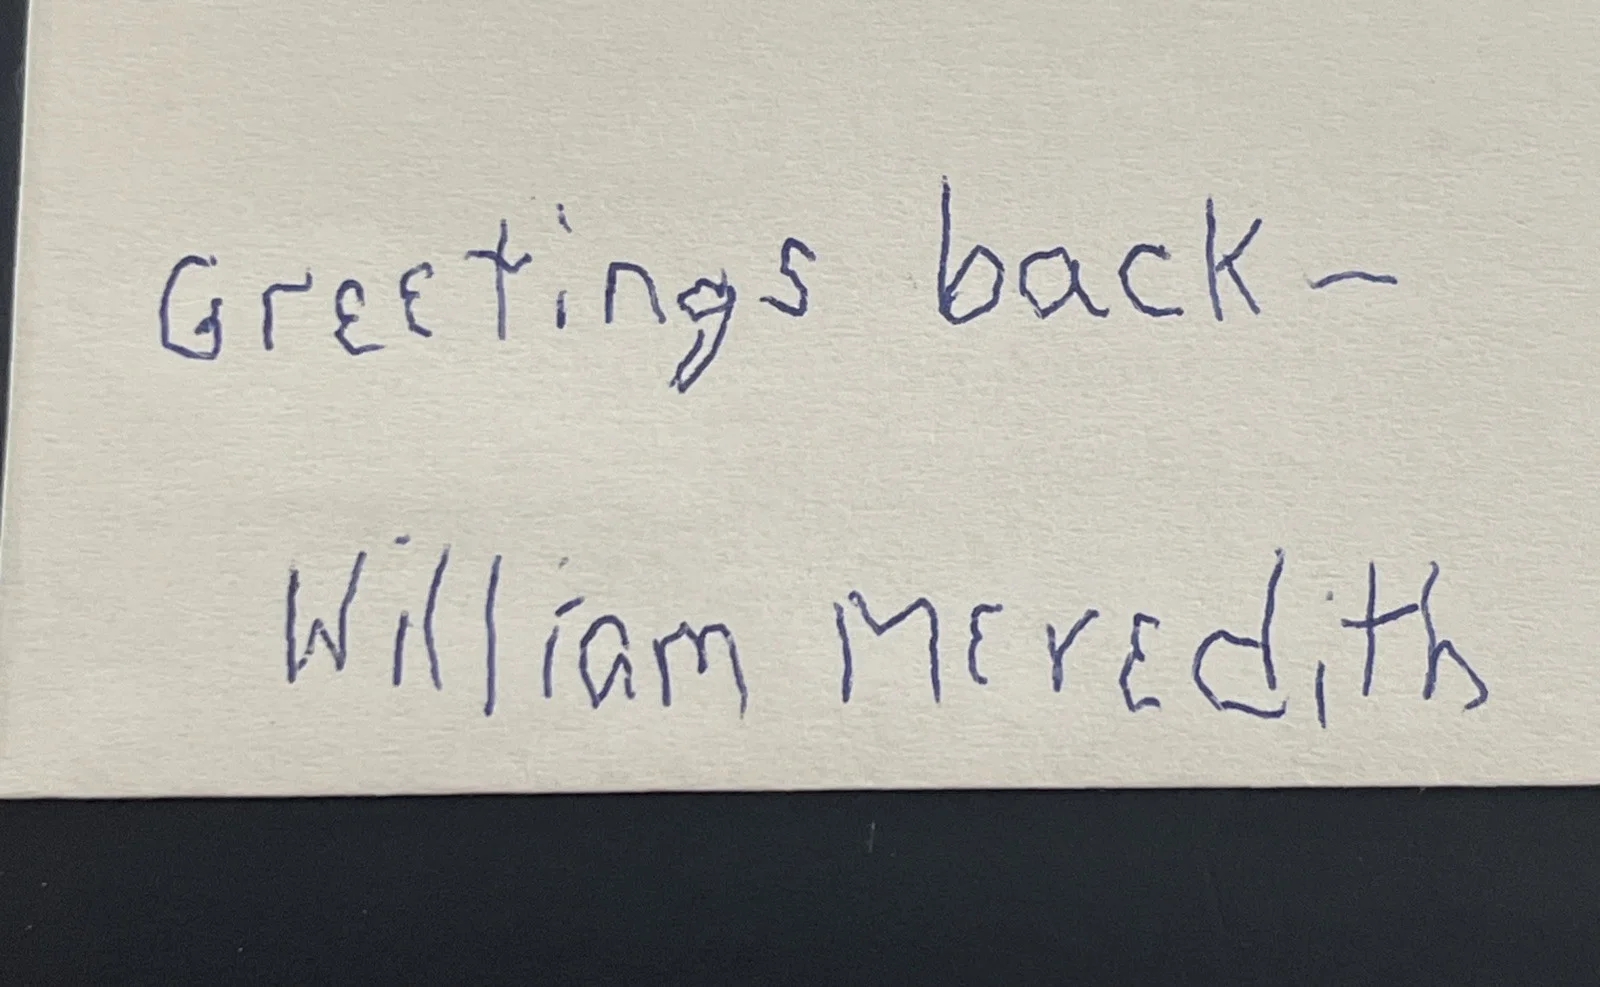 Greetings back –
William Meredith